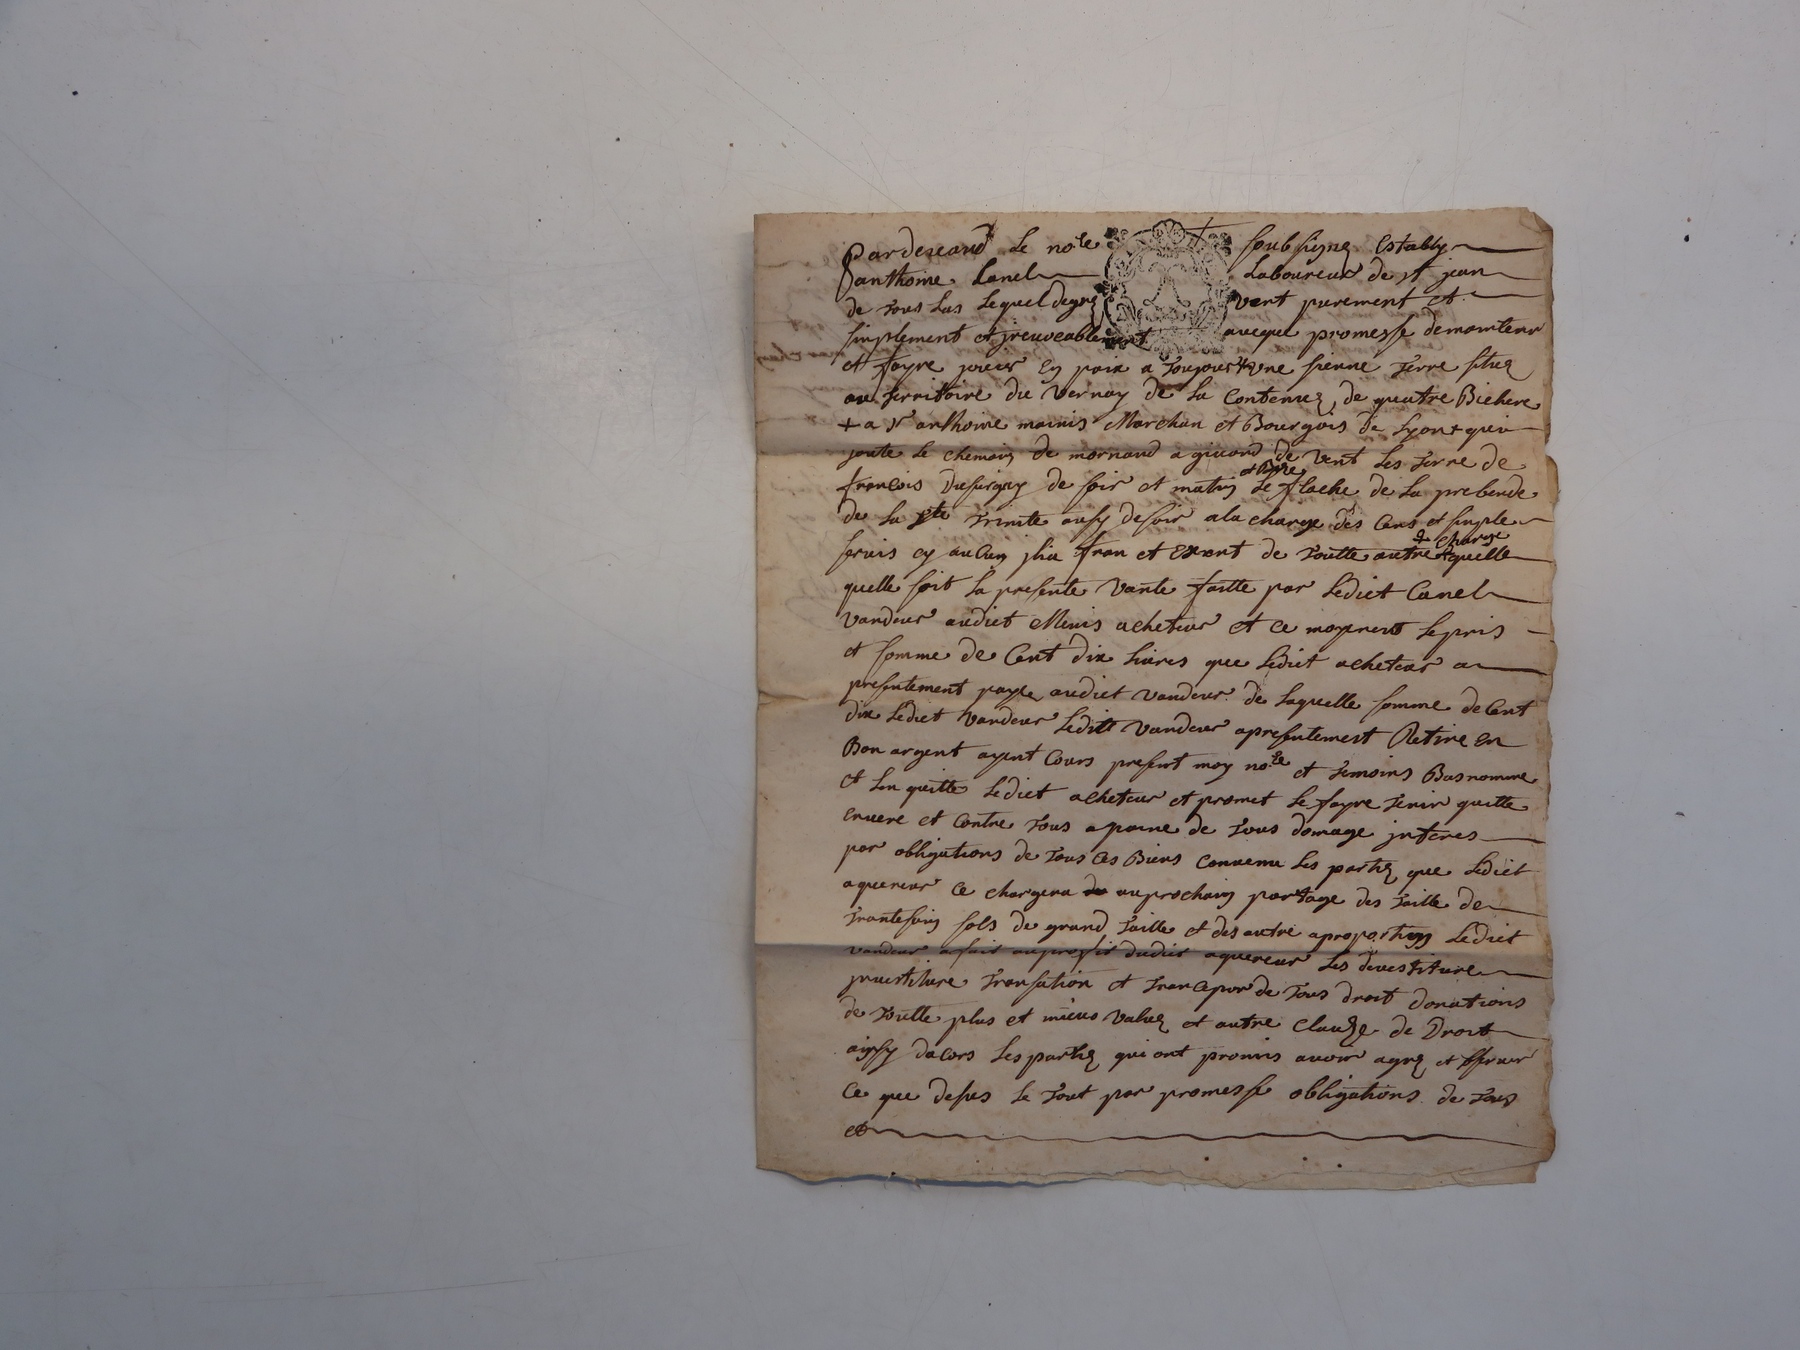 Pardevand le no.re soubsigne estably
anthoine Canel Laboureur de st jean
de tous las Lequel de gre vent purement et
simplement et jreuocablement aueque promesse demointenir
et fayre jouir en paix a toujours + une sienne terre situe
au territoire du Vernay de La Contenue de quatre Bichere
+ a sr anthoine mainis Marchan et Bourgois de Lyon + qui
joute le chemain de mornand a giuord de vent les terre de
francois Dufurgay de soir et matin et Bize Le flache de La prebende
de La ste trinite ausy de soir a la charge des Cens et simple
seruis cy aucun jlia fran et exent de toutte autre + charge + quelle
quelle soit La presente vante faitte par Ledict Canel
vandeur audict Minis acheteur et ce moyenent le pris
et somme de Cent dix liures que Ledict acheteur a
presentement paye audict vandeur de Laquelle somme de Cent
dix Ledict vandeur Ledict vandeur apresentement Retire en
Bon argent ayent Cours present moy no.re et temoins Bas nomme
et len quitte Ledict acheteur et promet le fayre tenir quitte
enuere et contre tous a paine de tous domage jnteres
par obligations de tous ces Biens conuenu Les partie que Ledict
aquereur ce chargera au prochain partage des taille de
trantesing sols de grand taille et des autre aproportion Ledict
vandeur a fait au profit dudit aquereur Les deuestiture
jnuestiture transation et trancpor de tous droit donations
de toutte plus et mieus value et autre clauze de Droit
ainsy dacors Les partie qui ont promis auoir agre et obseruer
Ce que desus le tout par promesse obligations de tous
et